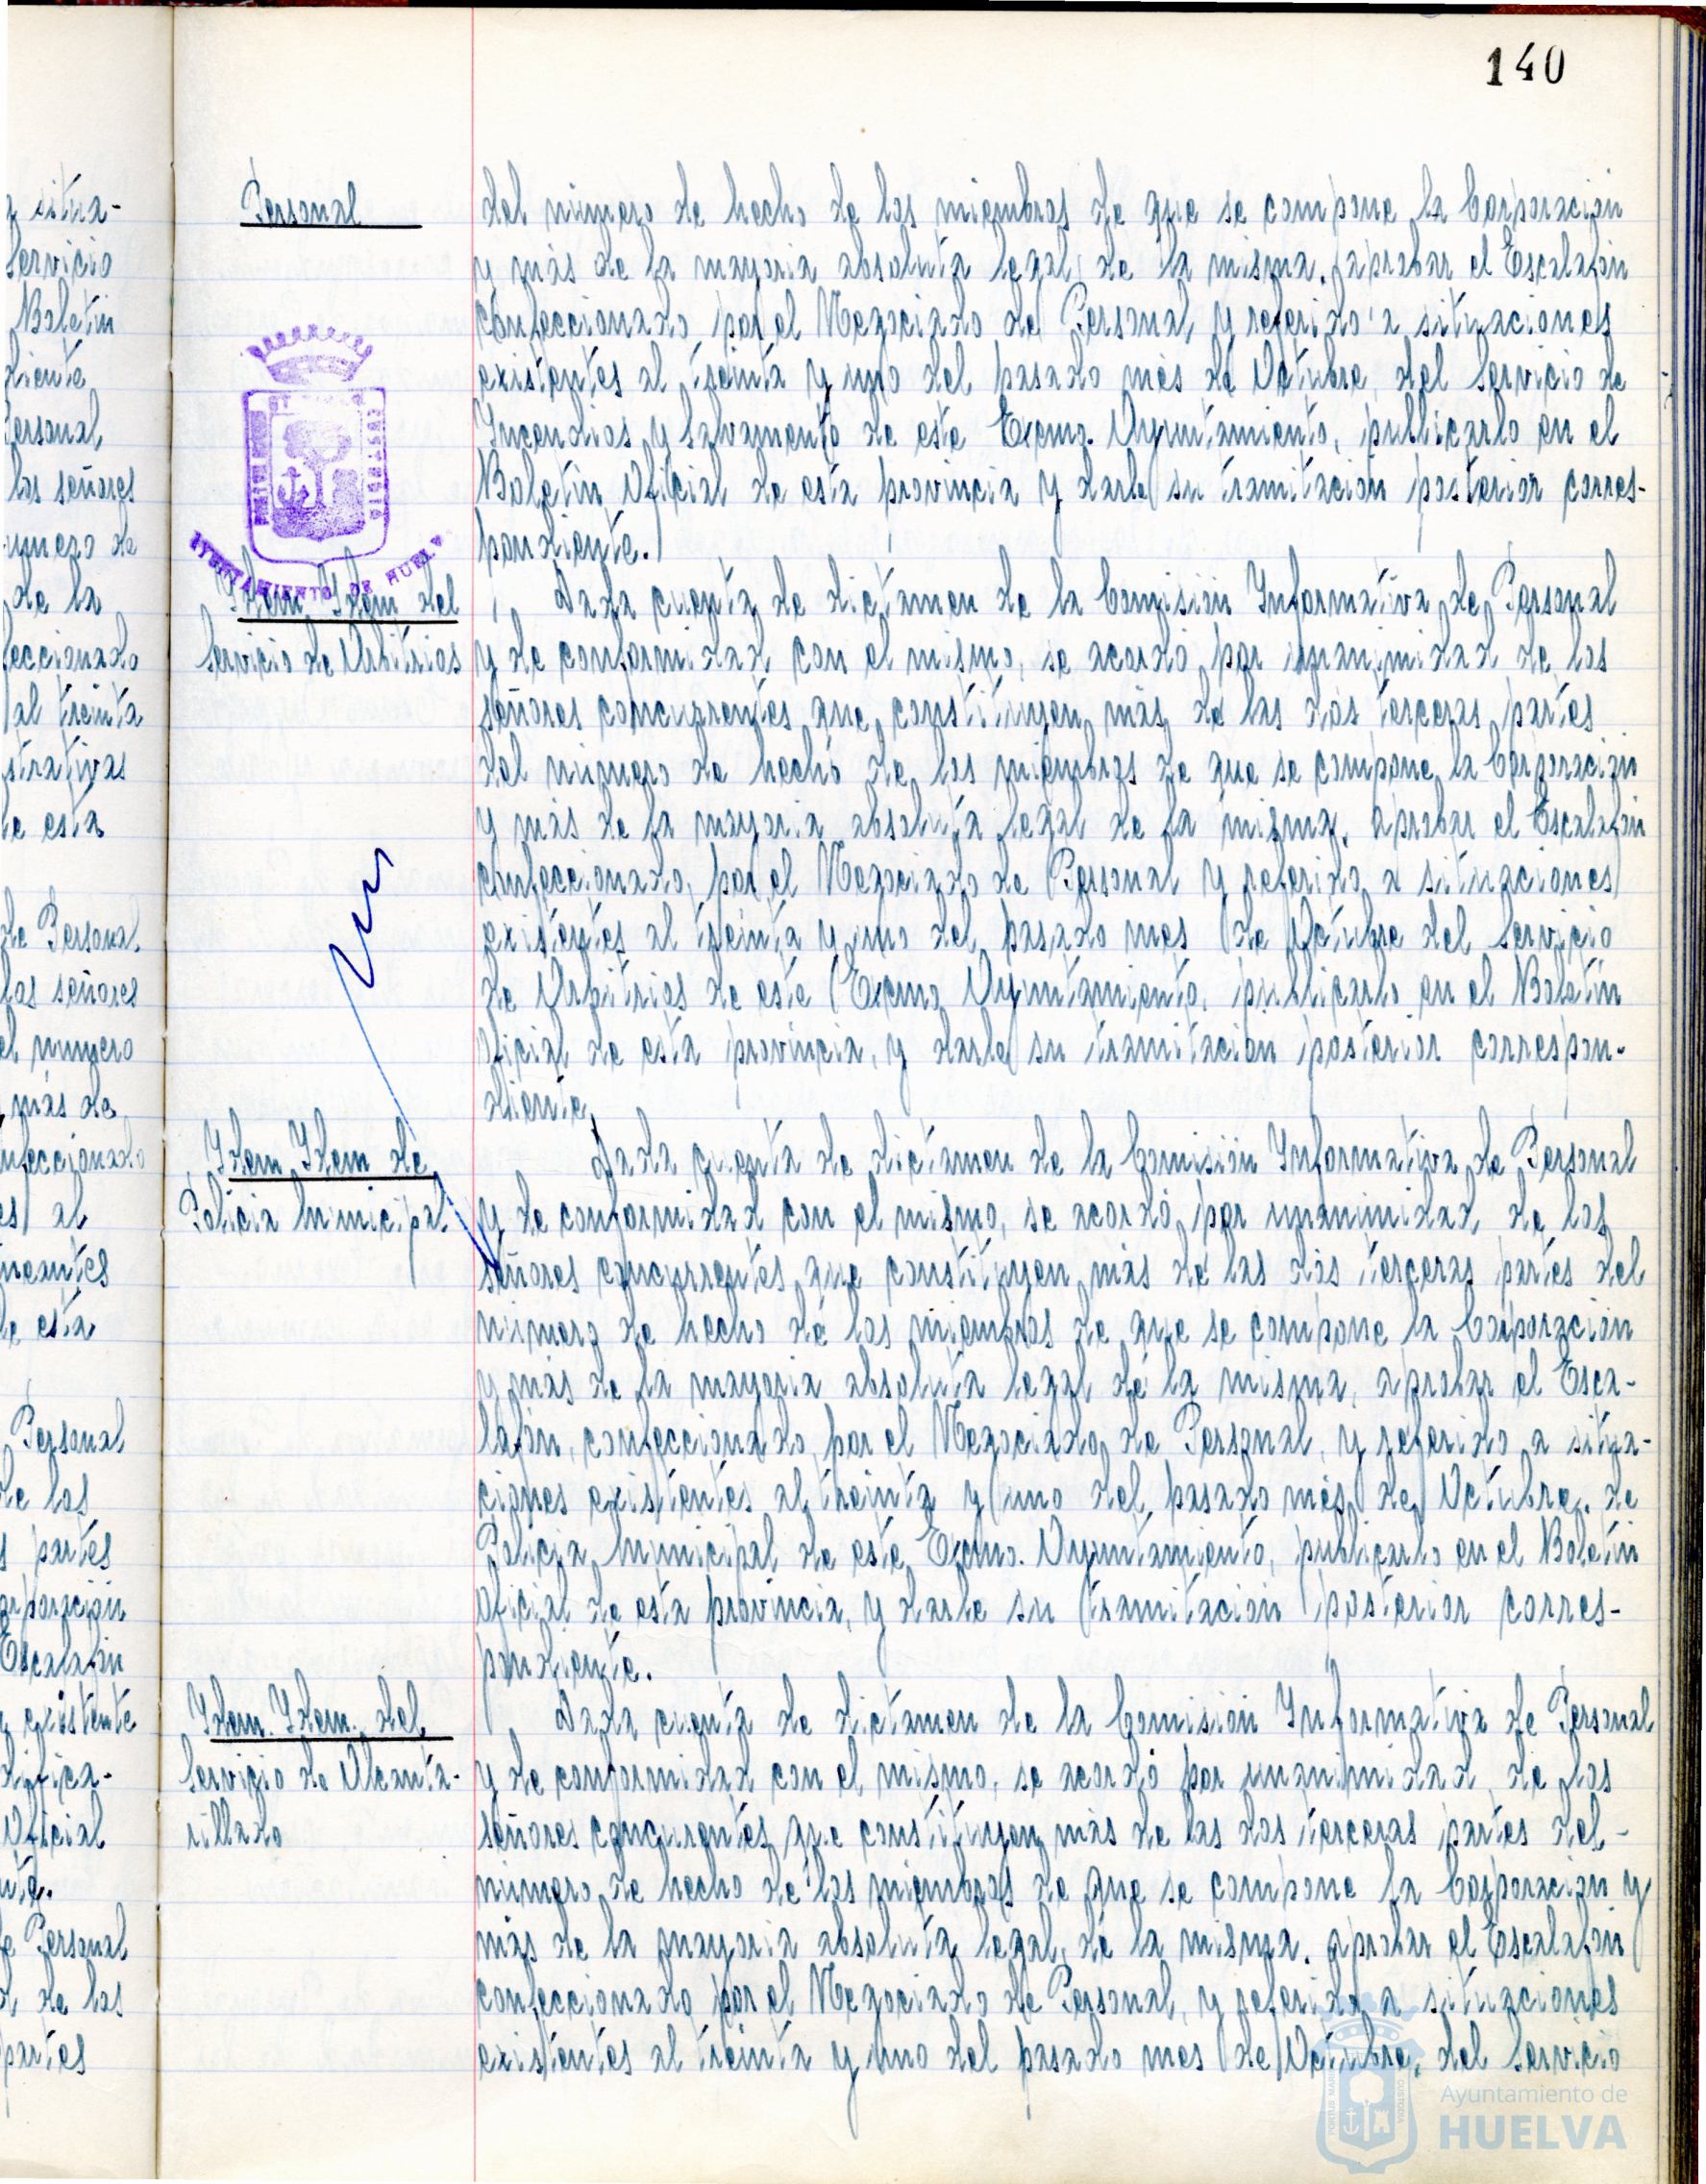 140
Personal
del número de hecho de los miembros de que se compone la Corporación
y más de la mayoria absoluta legal de la misma, aprobar el Escalafón
confeccionado por el Negociado de Personal y referido a situaciones
existentes al treinta y uno del pasado mes de Octubre, del Servicio de
Incendios y Salvamento de este Excmo. Ayuntamiento, publicarlo en el
Boletín Oficial de esta provincia y darle su tramitación posterior corres-
pondiente.
AYUNTAMIENTO DE HUELVA
Idem Idem del
Servicio de Arbitrios
Dada cuenta de dictamen de la Comisión Informativa de Personal
y de conformidad con el mismo, se acordó por unanimidad de los
señores concurrentes que constituyen más de las dos terceras partes
del número de hecho de los miembros de que se compone la Corporación
y más de la mayoria absoluta legal de la misma, aprobar el Escalafón
confeccionado, por el Negociado de Personal y referido a situaciones
existentes al treinta y uno del pasado mes de Octubre del Servicio
de Arbitrios de este Excmo. Ayuntamiento, publicarlo en el Boletín
Oficial de esta provincia, y darle su tramitación posterior correspon-
diente.
Idem Idem de
Policia Municipal
Dada cuenta de dictamen de la Comisión Informativa de Personal
y de conformidad con el mismo, se acordó, por unanimidad de los
señores concurrentes que constituyen más de las dos terceras partes del
número de hecho de los miembros de que se compone la Corporación
y más de la mayoria absoluta legal de la misma, aprobar el Esca-
lafón, confeccionado por el Negociado de Personal, y referido a situa-
ciones existentes al treinta y uno del pasado mes de Octubre, de
Policia Municipal de este Excmo. Ayuntamiento, publicarlo en el Boletín
Oficial de esta provincia, y darle su tramitación posterior corres-
pondiente.
Idem. Idem. del
Servicio de Alcanta-
rillado
Dada cuenta de dictamen de la Comisión Informativa de Personal
y de conformidad con el mismo, se acordó por unanimidad de los
señores concurrentes que constituyen más de las dos terceras partes del-
número de hecho de los miembros de que se compone la Corporación y
más de la mayoria absoluta legal de la misma, aprobar el Escalafón
confeccionado por el Negociado de Personal, y referido a situaciones
existentes al treinta y uno del pasado mes de Octubre, del Servicio
Ayuntamiento de
HUELVA